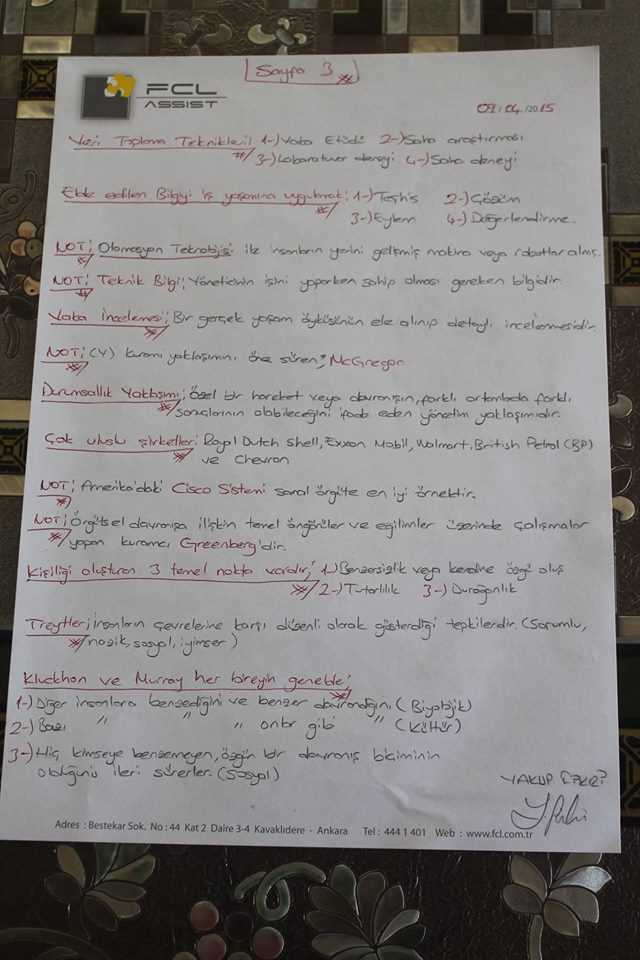 Sayfa 3
FCL
ASSIST
09/04/2015
Veri Toplama Teknikleri; 1-) Vaka Etüdü 2-) Saha araştırması
3-) Laboratuvar deneyi 4-) Saha deneyi
Elde edilen Bilgiyi iş yaşamına uygulamak; 1-) Teşhis 2-) Çözüm
3-) Eylem 4-) Değerlendirme.
NOT; Otomasyon Teknolojisi ile insanların yerini gelişmiş makina veya robotlar almış.
NOT; Teknik Bilgi; Yöneticinin işini yaparken sahip olması gereken bilgidir.
Vaka incelemesi; Bir gerçek yaşam öyküsünün ele alınıp detaylı incelenmesidir.
NOT; (Y) kuramı yaklaşımını öne süren; McGregor
Durumsallık Yaklaşımı; Özel bir hareket veya davranışın, farklı ortamlarda farklı
sonuçlarının olabileceğini ifade eden yönetim yaklaşımıdır.
Çok uluslu şirketler; Royal Dutch Shell, Exxon Mobil, Walmart, British Petrol (BP)
ve Chevron
NOT; Amerika'daki Cisco Sistemi sanal örgüte en iyi örnektir.
NOT; Örgütsel davranışa ilişkin temel öngörüler ve eğilimler üzerinde çalışmalar
yapan kuramcı Greenberg'dir.
Kişiliği oluşturan 3 temel nokta vardır; 1-) Benzersizlik veya kendine özgü oluş
2-) Tutarlılık 3-) Durağanlık
Treytler; insanların çevrelerine karşı düzenli olarak gösterdiği tepkilerdir. (Sorumlu,
nazik, sosyal, iyimser)
Kluckhon ve Murray her bireyin genelde;
1-) Diğer insanlara benzediğini ve benzer davrandığını, (Biyolojik)
2-) Bazı " " " onlar gibi " (Kültür)
3-) Hiç kimseye benzemeyen, özgün bir davranış biçiminin
olduğunu ileri sürerler. (Sosyal)
YAKUP
Adres : Bestekar Sok. No : 44 Kat 2 Daire 3-4 Kavaklıdere - Ankara Tel : 444 1 401 Web : www.fcl.com.tr